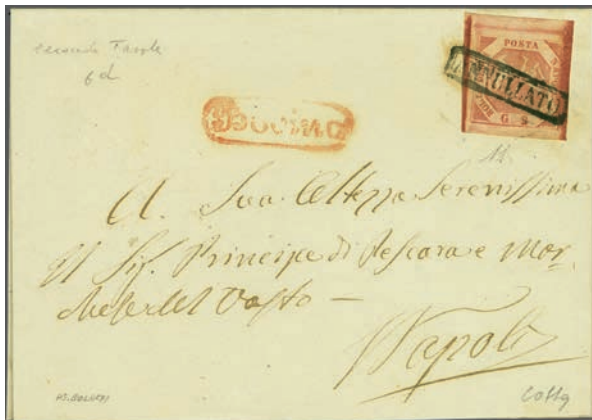 seconda Tavola
6d
POSTA
ANNULLATO
G 2
A. Sua Altezza Serenissima
Il Sig. Principe di Pescara e Mar-
chese del Vasto —
Napoli